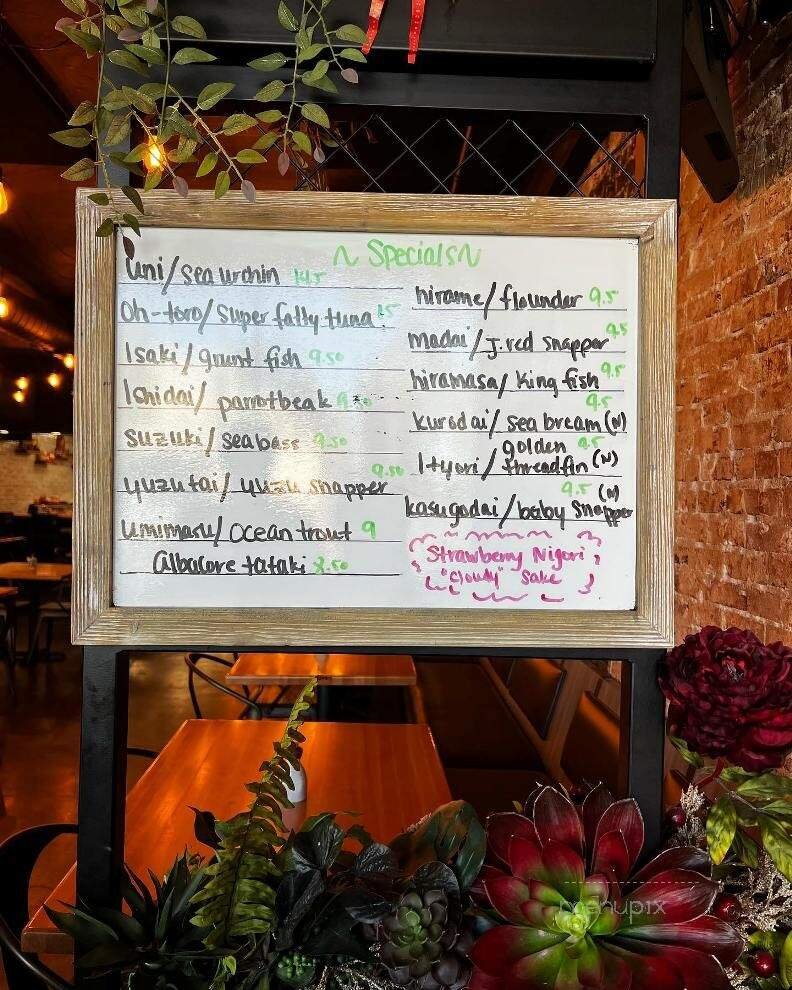 ~ Specials ~
Uni/sea urchin 14.5
Oh-toro/super fatty tuna 15
Isaki/grunt fish 9.50
Ishidai/ parrotbeak 9.50
suzuki/seabass 9.50
yuzutai/ yuzu snapper 9.50
umimasu/ocean trout 9
Albacore tataki 8.50
hirame/flounder 9.5
madai/J.red snapper 9.5
hiramasa/King fish 9.5
kurodai/sea bream (N) 9.5
Ityori/golden threadfin (N) 9.5
kasugodai/baby snapper (N) 9.5
Strawberry Nigori
"cloudy" sake
menupix